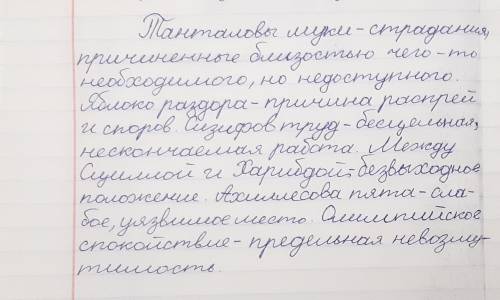 Танталовы муки - страдания,
причиненные близостью чего-то
необходимого, но недоступного.
Яблоко раздора - причина распрей
и споров. Сизифов труд - бесцельная,
нескончаемая работа. Между
Сциллой и Харибдой - безвыходное
положение. Ахиллесова пята - сла-
бое, уязвимое место. Олимпийское
спокойствие - предельная невозму-
тимость.